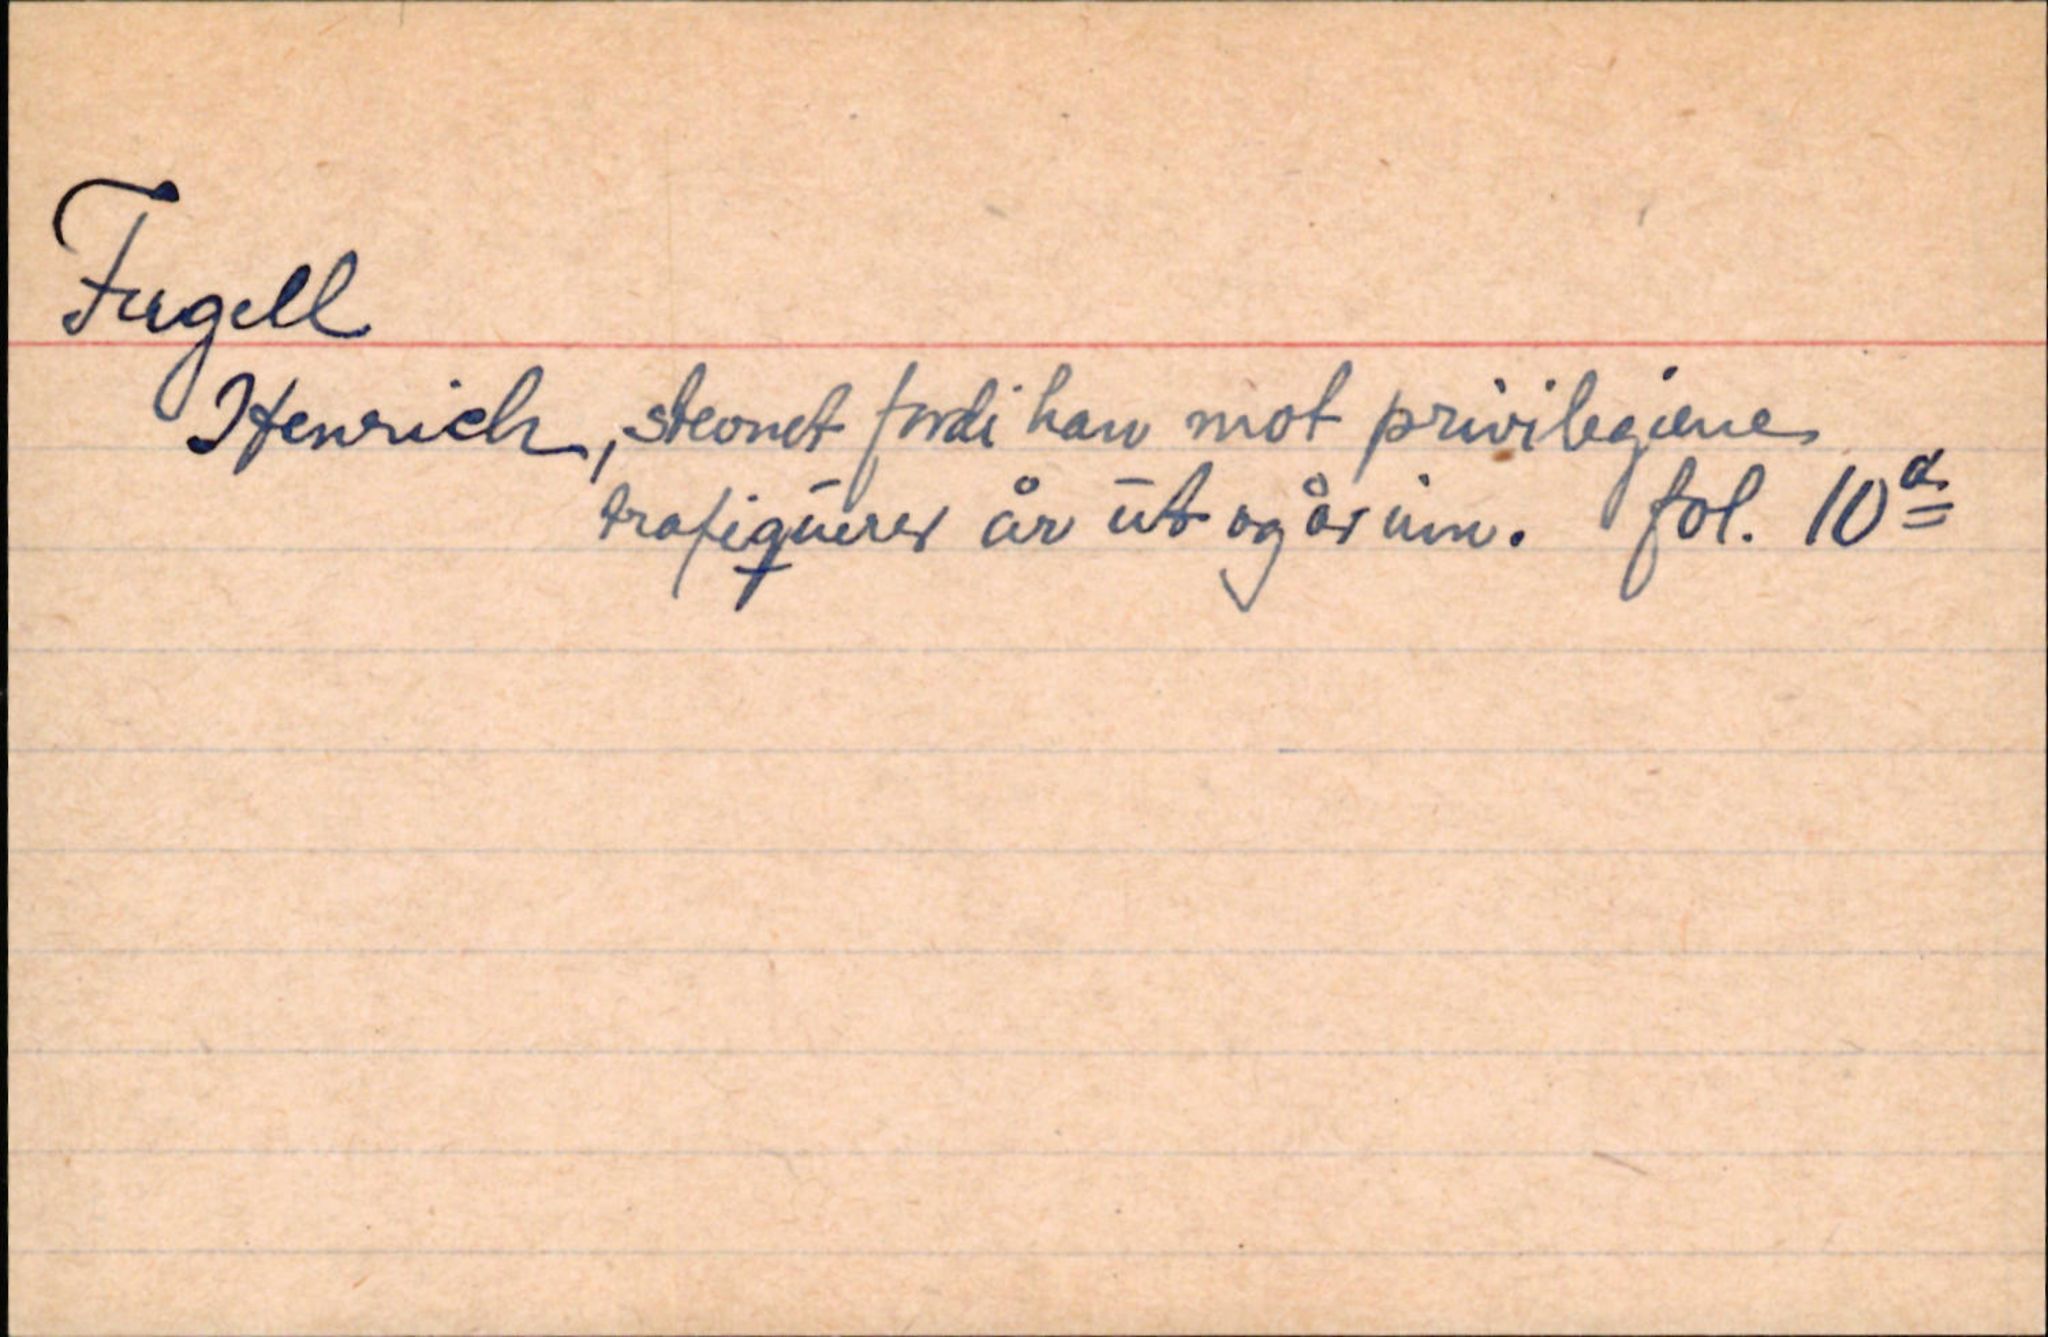 Fugell
Henrich, stevnet fordi han mot privilegiene
trafiquerer år ut og år inn. fol. 10a